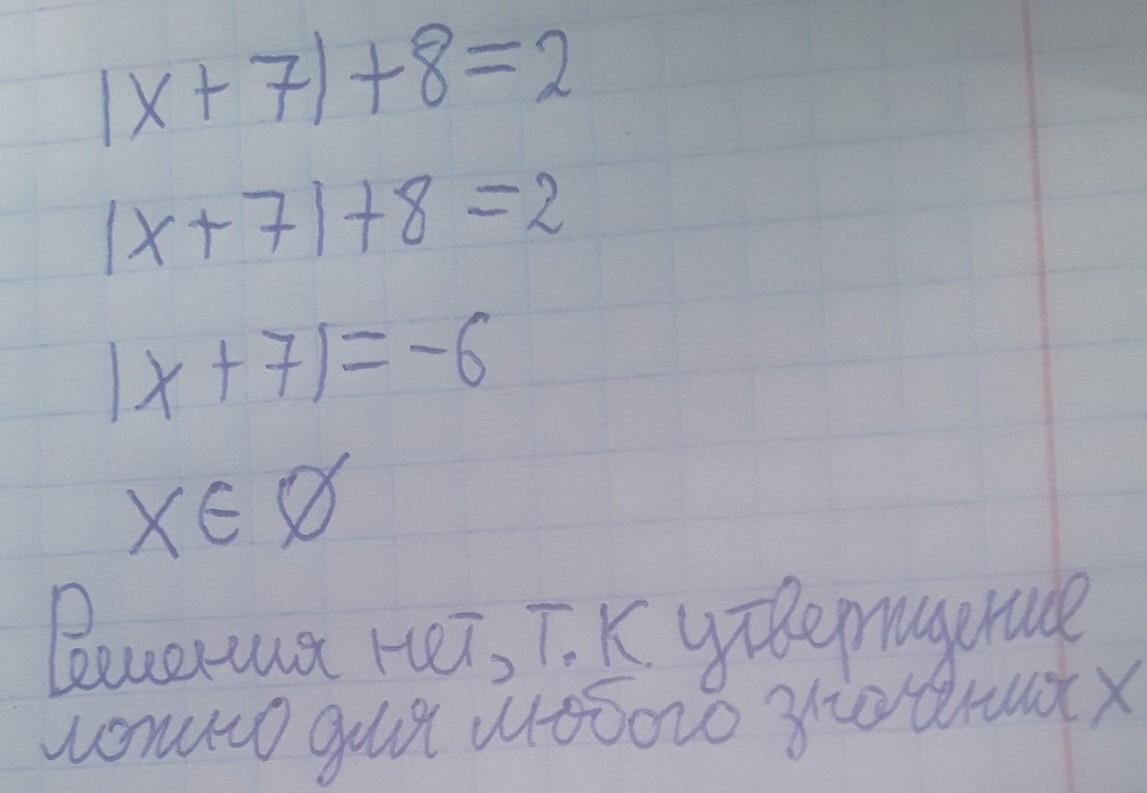 |x + 7| + 8 = 2
|x + 7| + 8 = 2
|x + 7| = -6
x ∈ ∅
Решения нет, т.к. утверждение
ложно для любого значения x